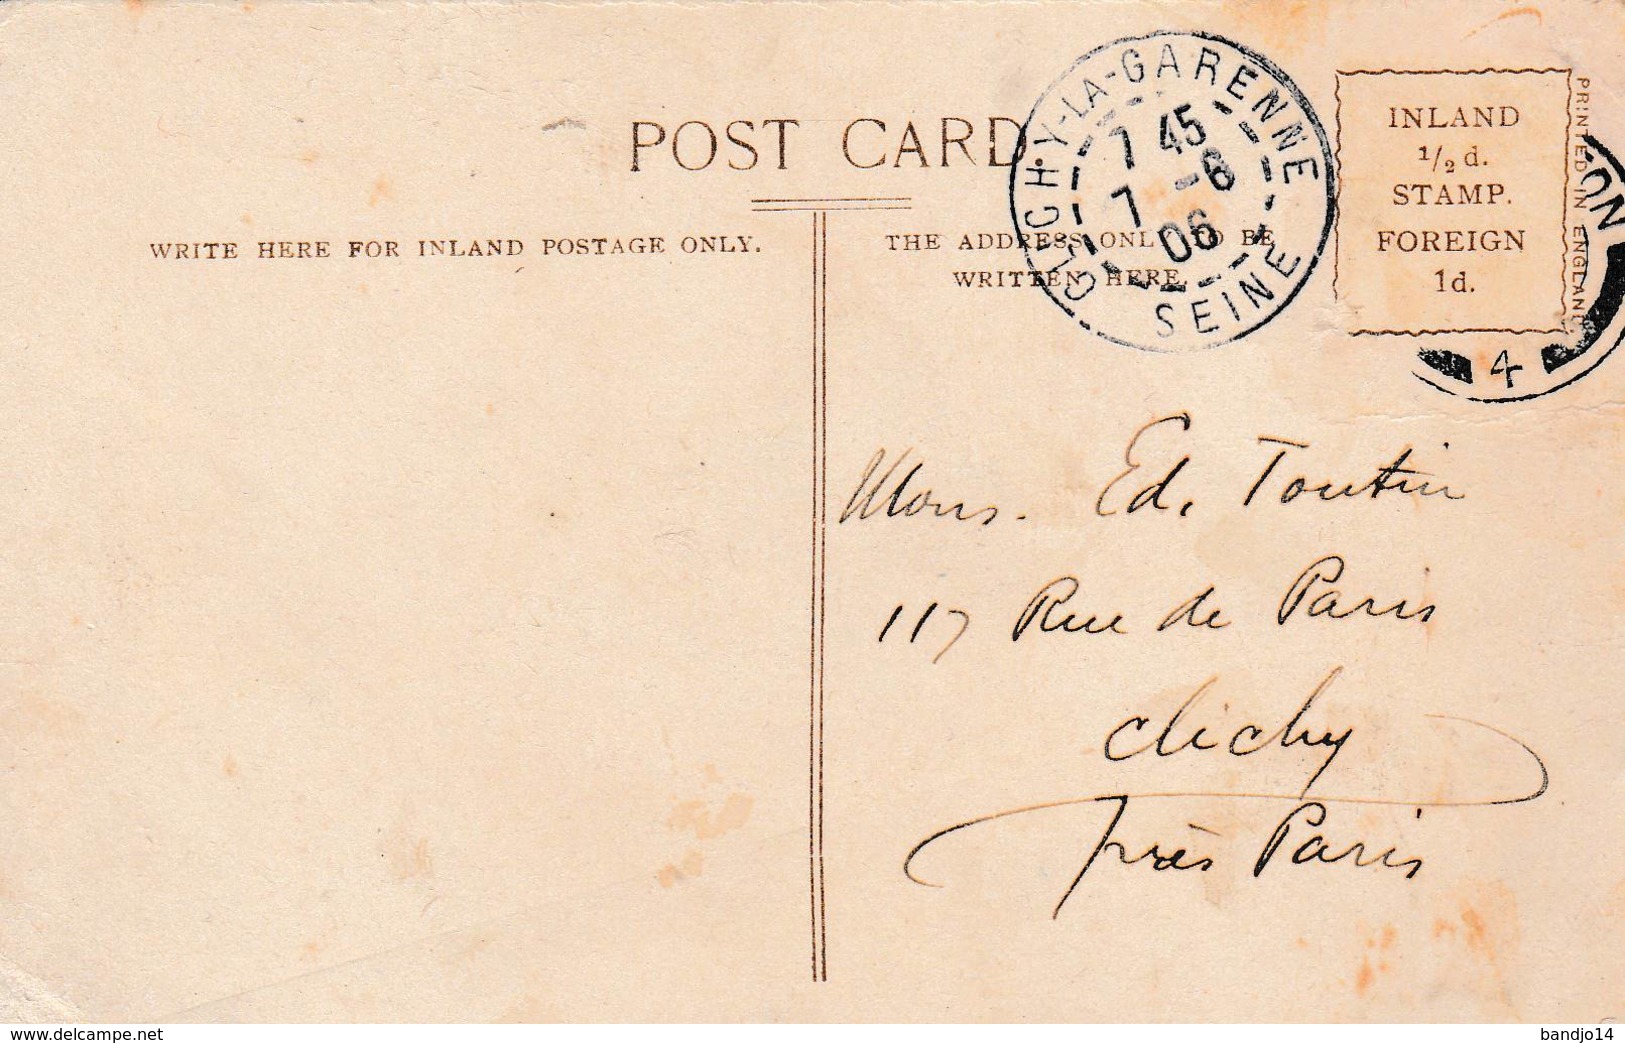 POST CARD
WRITE HERE FOR INLAND POSTAGE ONLY.
THE ADDRESS ONLY TO BE
WRITTEN HERE.
CLICHY-LA-GARENNE
7 45
7 -6
06
SEINE
INLAND
1/2 d.
STAMP.
FOREIGN
1d.
PRINTED IN ENGLAND
ON
4
Mons. Ed. Toutin
117 Rue de Paris
Clichy
près Paris
www.delcampe.net
bandjo14